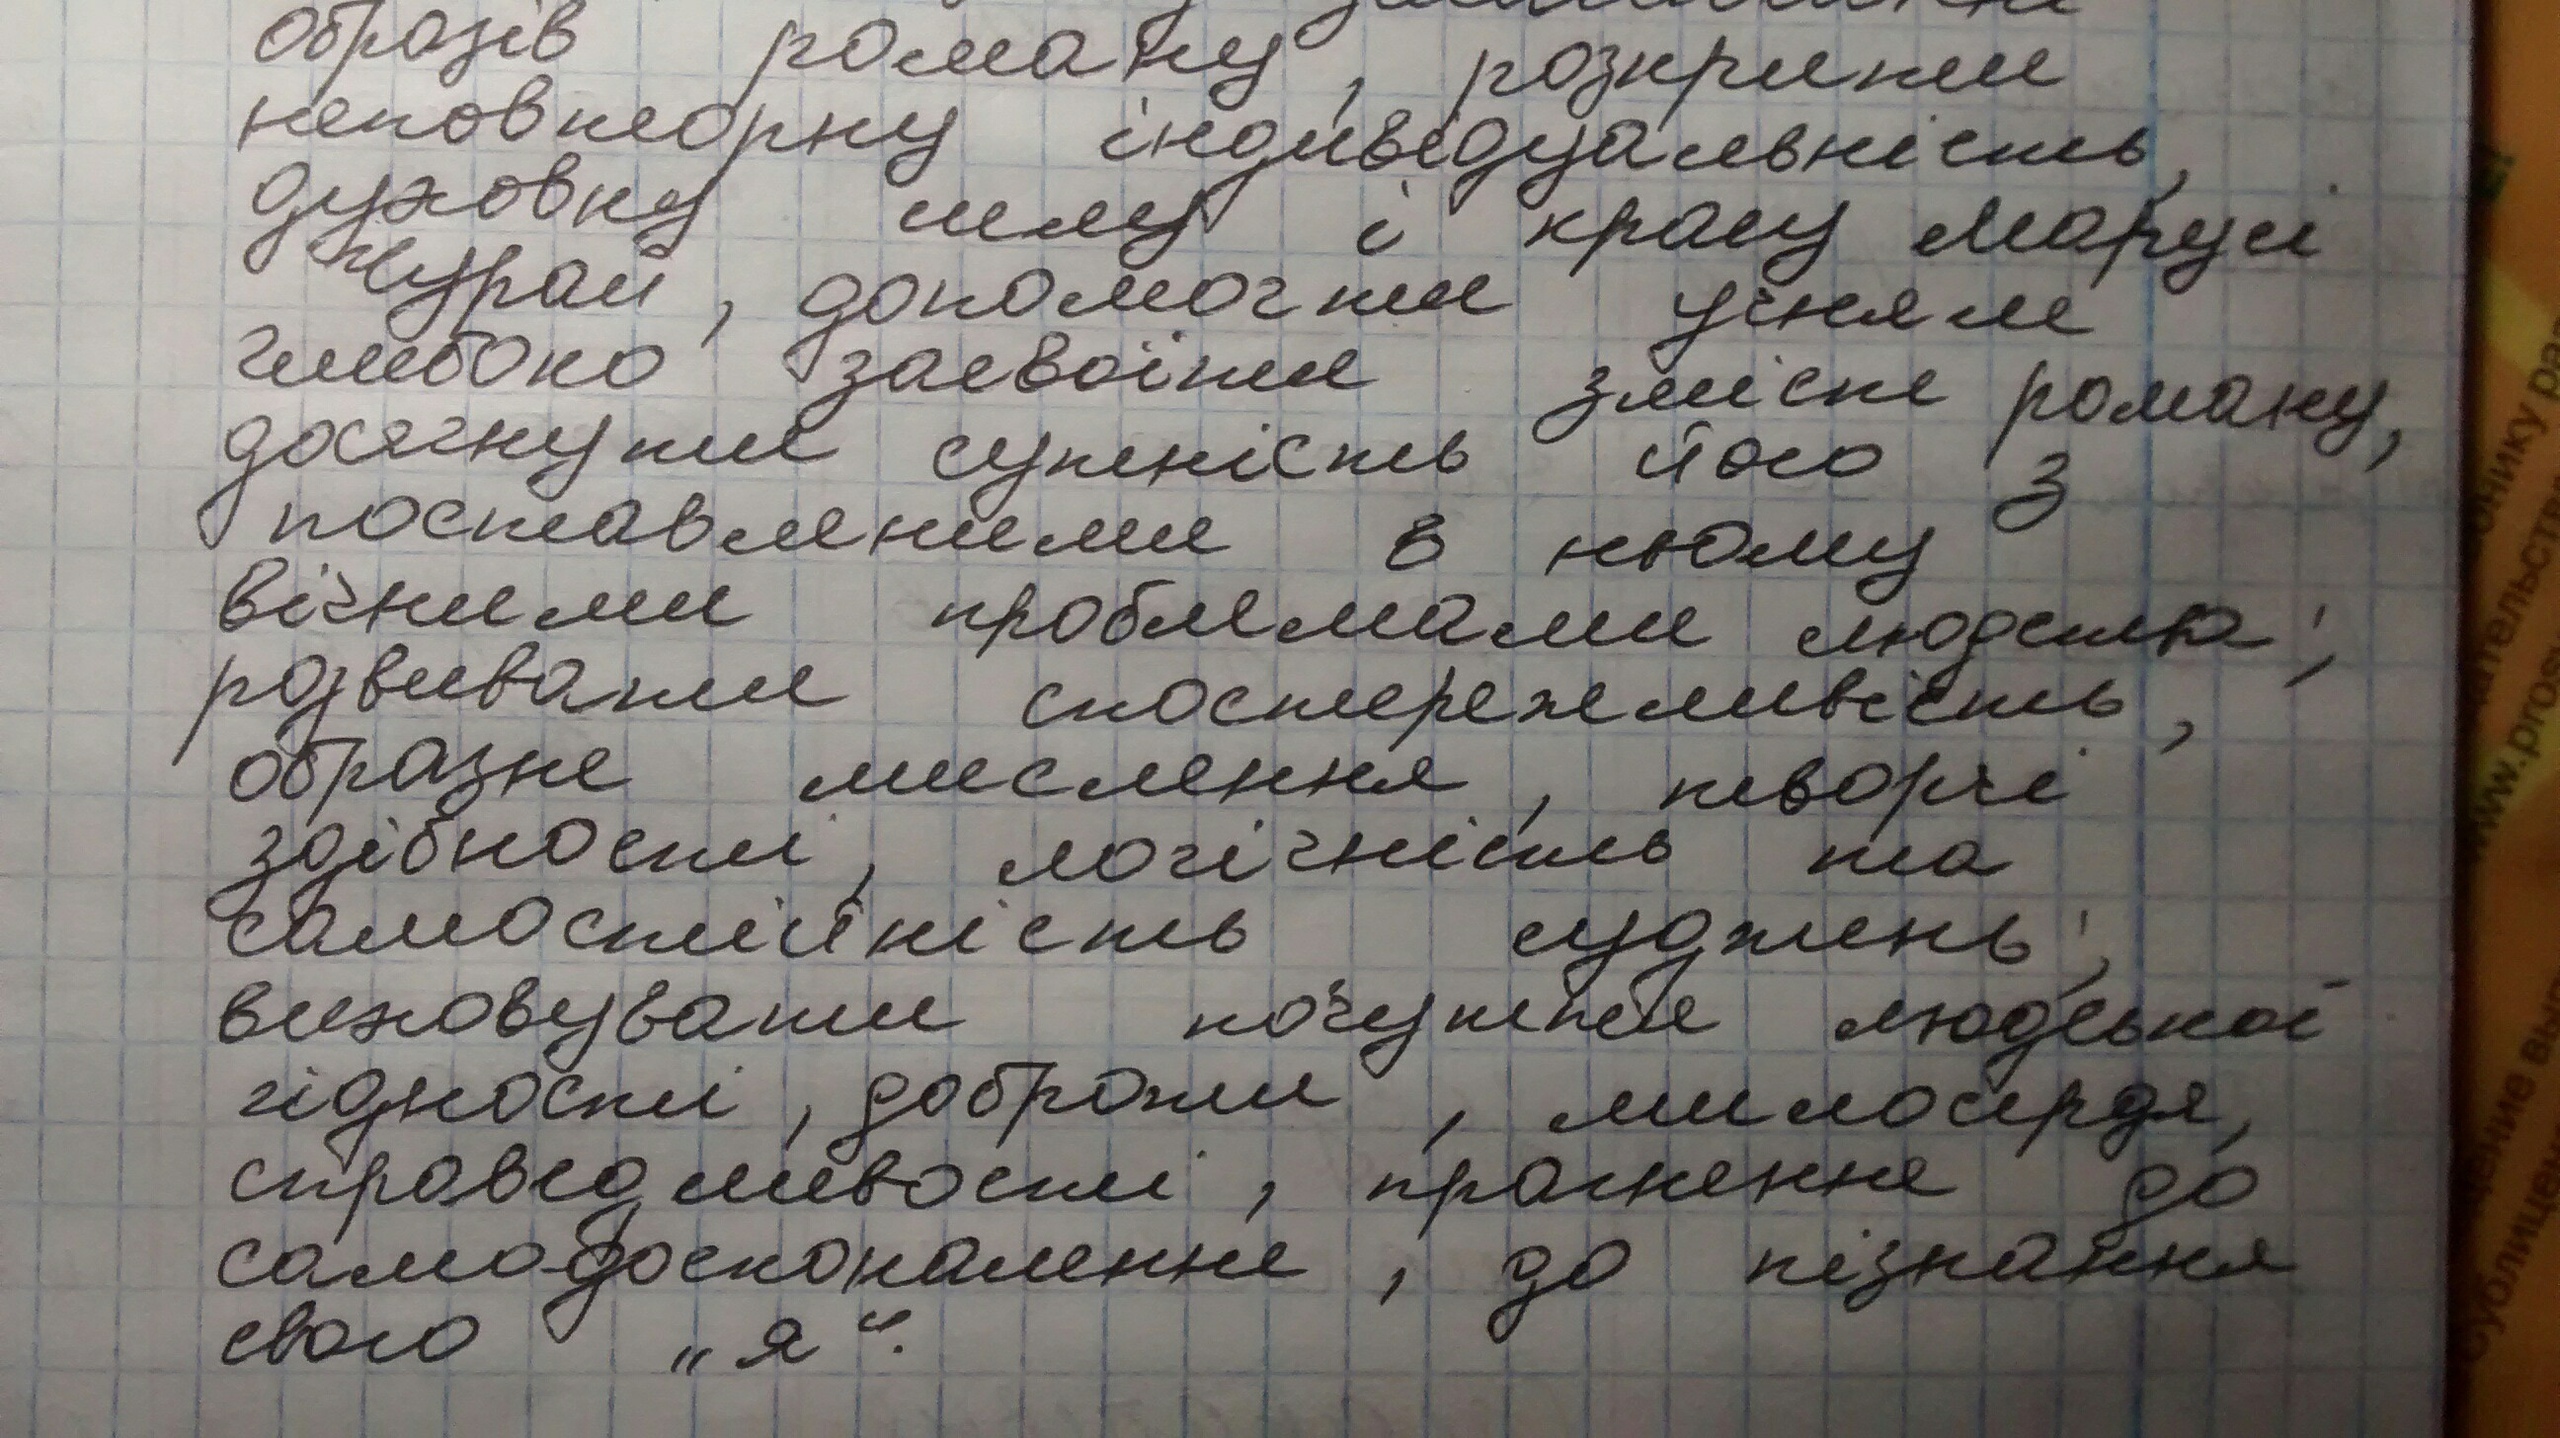 образів роману, розкрити
неповторну індивідуальність,
духовну силу і красу Марусі
Чурай, допомогти учням
глибоко засвоїти зміст роману,
досягнути сутність його з
поставленими в ньому
вічними проблемами людства;
розвивати спостережливість,
образне мислення, творчі
здібності, логічність та
самостійність суджень;
виховувати почуття людської
гідності, доброти, милосердя,
справедливості, прагнення до
самодосконалення, до пізнання
свого „я“.
www.pros